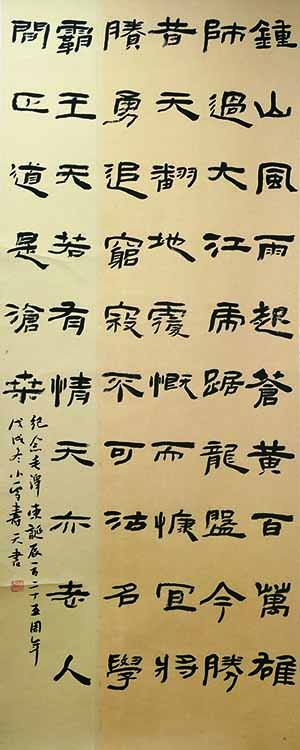 鍾山風雨起蒼黃百萬雄
師過大江虎踞龍盤今勝
昔天翻地覆慨而慷宜將
賸勇追窮寇不可沽名學
霸王天若有情天亦老人
間正道是滄桑
紀念毛澤東誕辰一百二十五周年
戊戌冬小雪壽天書